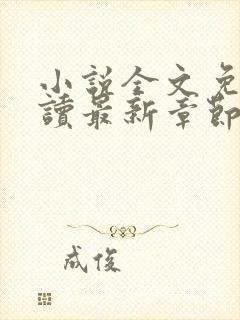 小說全文免
讀最新章節
成俊